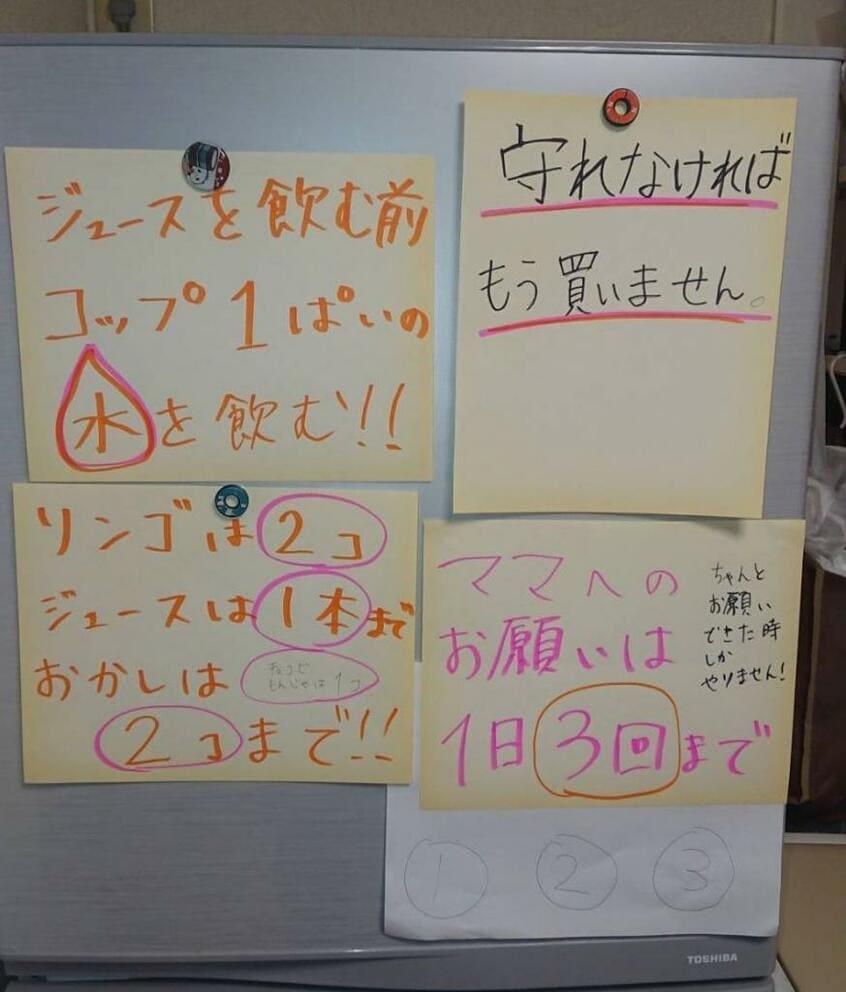 ジュースを飲む前
コップ1ぱいの
水を飲む!!
守れなければ
もう買いません。
リンゴは2コ
ジュースは1本まで
おかしは
2コまで!!
ママへの
お願いは
1日3回まで
ちゃんと
お願い
できた時
しか
やりません!
① ② ③
TOSHIBA